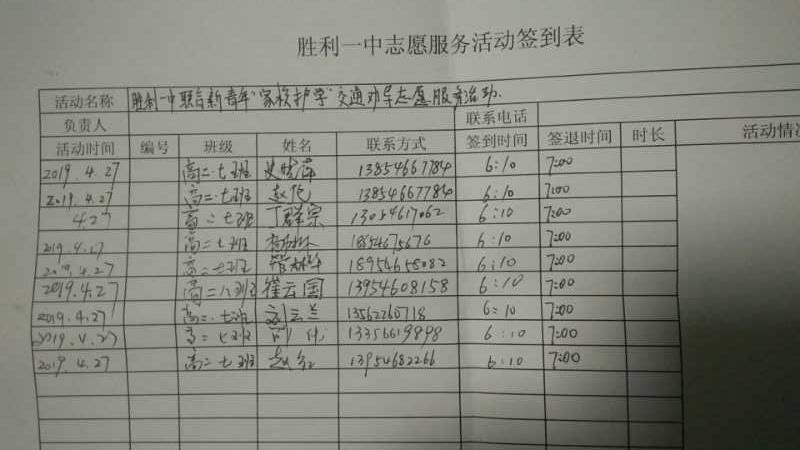 胜利一中志愿服务活动签到表
活动名称 胜利一中联合新青年"家校护学"交通劝导志愿服务活动.
负责人 联系电话
活动时间 编号 班级 姓名 联系方式 签到时间 签退时间 时长 活动情
2019.4.27 高二七班 13854667784 6:10 7:00
2019.4.27 高二.七班 赵伦 13854667784 6:10 7:00
4.27 高二七班 丁群宗 13054617062 6:10 7:00
2019.4.27 高二七班 18854675676 6:10 7:00
2019.4.27 高二七班 18954658082 6:10 7:00
2019.4.27 高二八班 崔云国 13954608158 6:10 7:00
2019.4.27 高二.七班 刘云兰 13562260718 6:10 7:00
2019.4.27 高二七班 13356619898 6:10 7:00
2019.4.27 高二七班 赵红 13954682266 6:10 7:00